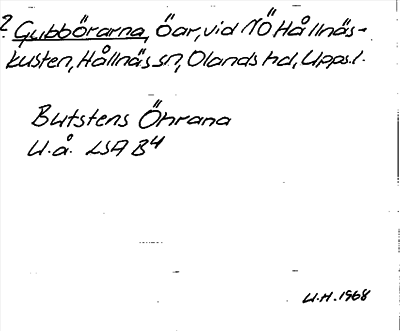 ? Gubbörarna, öar, vid NÖ Hållnäs-
kusten, Hållnäs sn, Olands hd, Upps.l.
Butstens Öhrana
U.å. LSA B4
U.H. 1968